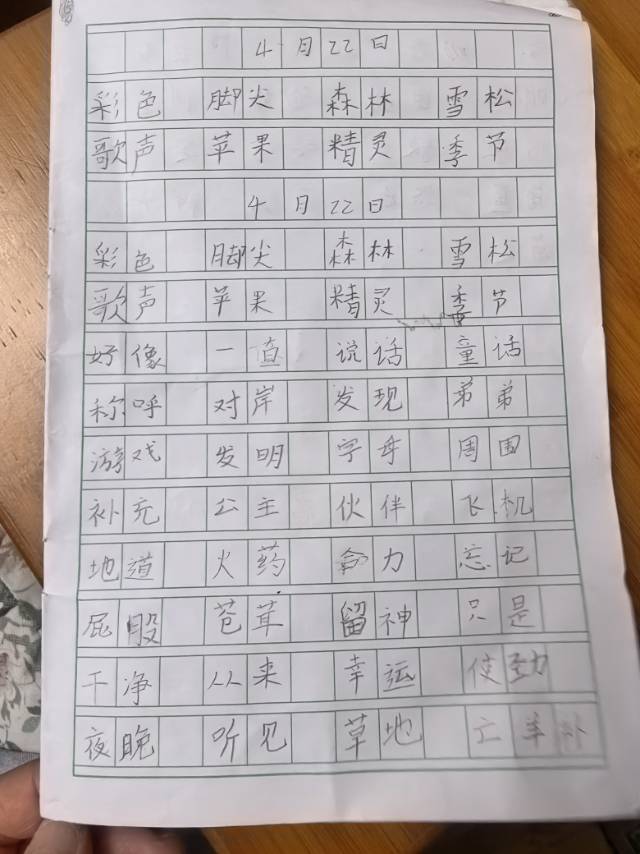 4月22日
彩色 脚尖 森林 雪松
歌声 苹果 精灵 季节
4月22日
彩色 脚尖 森林 雪松
歌声 苹果 精灵 季节
好像 一直 说话 童话
称呼 对岸 发现 弟弟
游戏 发明 字母 周围
补充 公主 伙伴 飞机
地道 火药 力 忘记
屁股 苍 留神 只是
干净 从来 幸运 使劲
夜晚 听见 草地 亡羊补